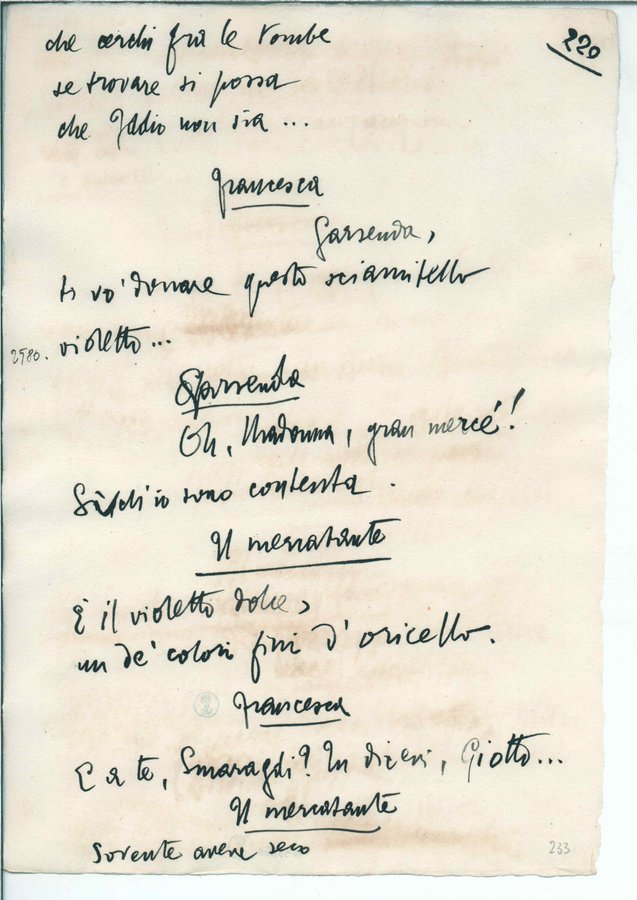 220
che cerchi fra le tombe
se trovare si possa
che Iddio non sia ...
Francesca
Garsenda,
ti vo' donare questo sciamitello
2980. violetto...
Garsenda
Oh, Madonna, gran mercé!
Sì ch'io sono contenta.
Il mercatante
È il violetto dolce,
un de' colori fini d'oricello.
Francesca
E a te, Smaragdi? Tu dicevi, Giotto...
Il mercatante
Sovente avere seco
233